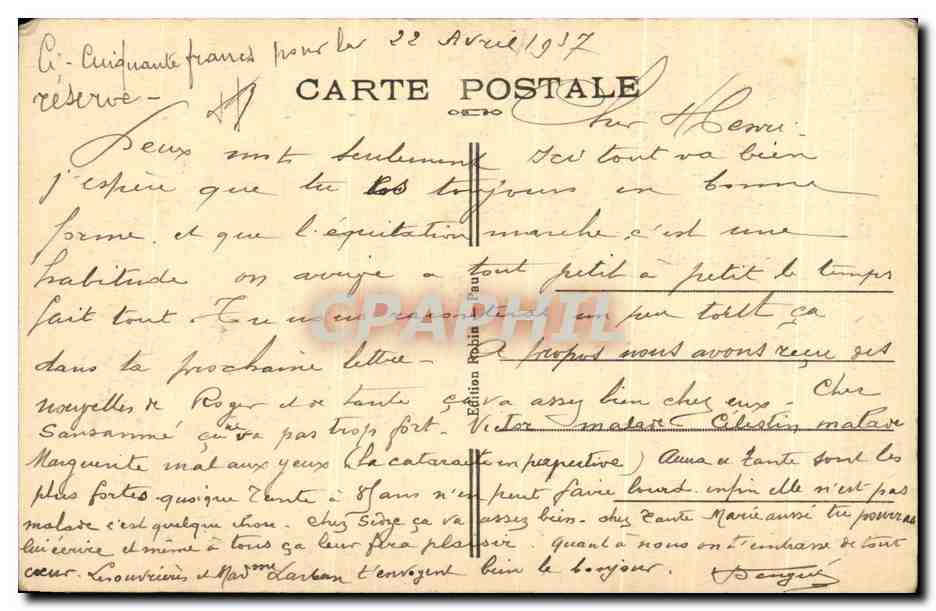 Ci-Cinquante francs pour la 22 Avril 1937
réserve -
CARTE POSTALE
Cher Henri.
Deux mots seulement Ici tout va bien
j'espère que tu es toujours en bonne
forme. et que l'équitation marche, c'est une
habitude on arrive a tout petit à petit le temps
fait tout. Tu nous raconteras un peu tout ça
dans ta prochaine lettre - A propos nous avons reçu des
nouvelles de Roger et de tante ça va assez bien chez eux - Chez
ça ne va pas trop fort. Victor malade Célestin malade
Marguerite mal aux yeux (la cataracte en perspective) Anna et Tante sont les
plus fortes quoique Tante à 81 ans n'en peut faire lourd. enfin elle n'est pas
malade c'est quelque chose. chez ça va assez bien - chez Tante Marie aussi tu pourras
lui écrire et même à tous ça leur fera plaisir. quant à nous on t'embrasse de tout
cœur. Les ouvrières et Mad^me t'envoyent bien le bonjour.
Edition Robin Pau
CPAPHIL